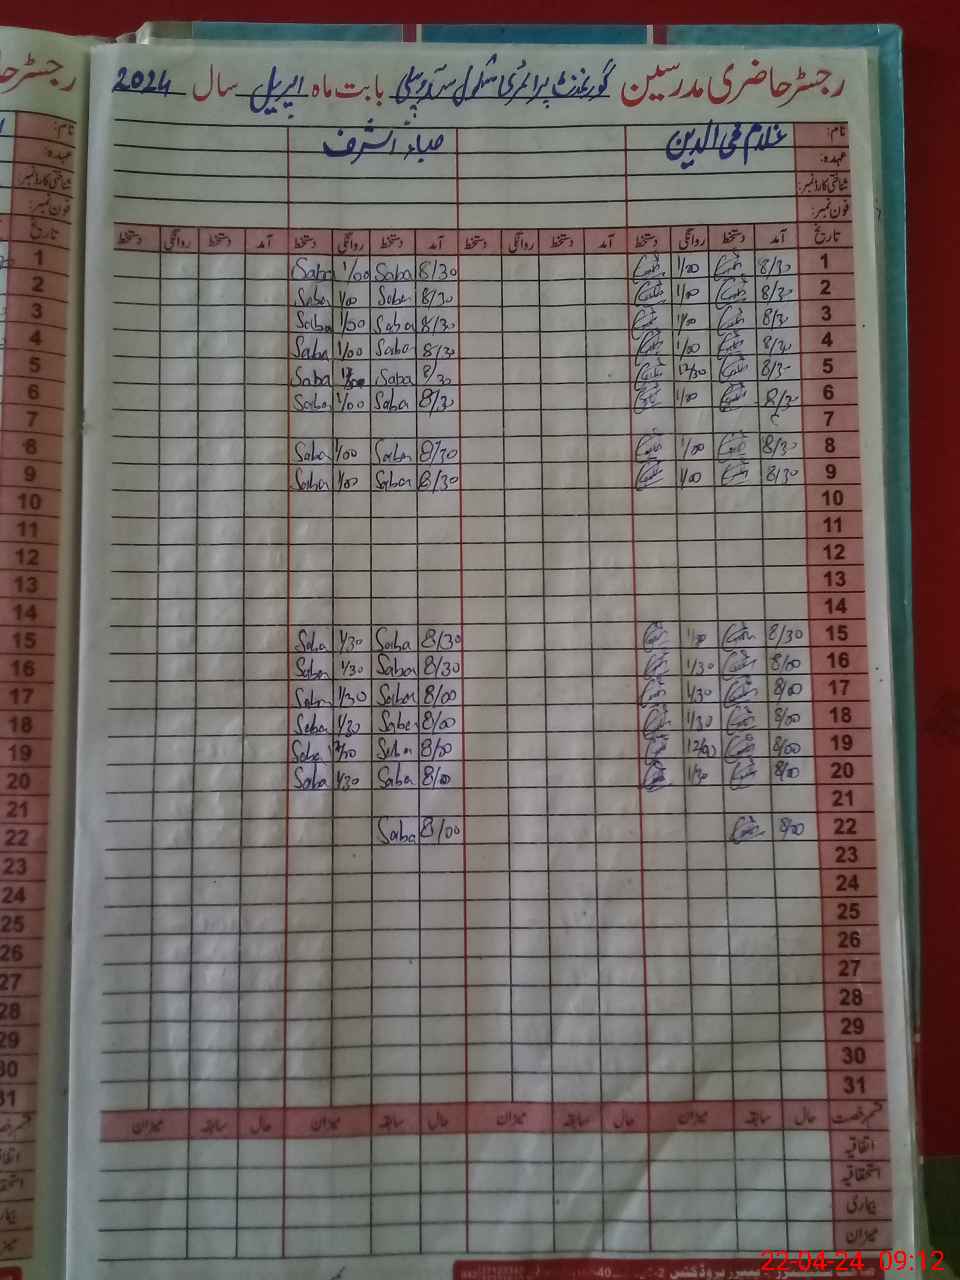 رجسٹر حاضری مدرسین گورنمنٹ پرائمری سکول بابت ماہ اپریل سال 2024
نام: غلام محی الدین صباء اشرف
عہدہ:
شناختی کارڈ نمبر:
فون نمبر:
تاریخ آمد دستخط روانگی دستخط آمد دستخط روانگی دستخط آمد دستخط روانگی دستخط آمد دستخط روانگی دستخط
1 8/30 1/00 8/30 Saba 1/00 Saba
2 8/30 1/00 8/30 Saba 1/00 Saba
3 8/30 1/00 8/30 Saba 1/00 Saba
4 8/30 1/00 8/30 Saba 1/00 Saba
5 8/30 12/30 8/30 Saba Saba
6 8/30 1/00 8/30 Saba 1/00 Saba
7
8 8/30 1/00 8/30 Saba 1/00 Saba
9 8/30 1/00 8/30 Saba 1/00 Saba
10
11
12
13
14
15 8/30 1/00 8/30 Saba 1/30 Saba
16 8/00 1/30 8/30 Saba 1/30 Saba
17 8/00 1/30 8/00 Saba 1/30 Saba
18 8/00 1/30 8/00 Saba 1/30 Saba
19 8/00 12/00 8/00 Saba 12/00 Saba
20 8/00 1/30 8/00 Saba 1/30 Saba
21
22 8/00 8/00 Saba
23
24
25
26
27
28
29
30
31
قسم رخصت حال سابقہ میزان حال سابقہ میزان حال سابقہ میزان حال سابقہ میزان
اتفاقیہ
استحقاقیہ
بیماری
میزان
22-04-24 09:12